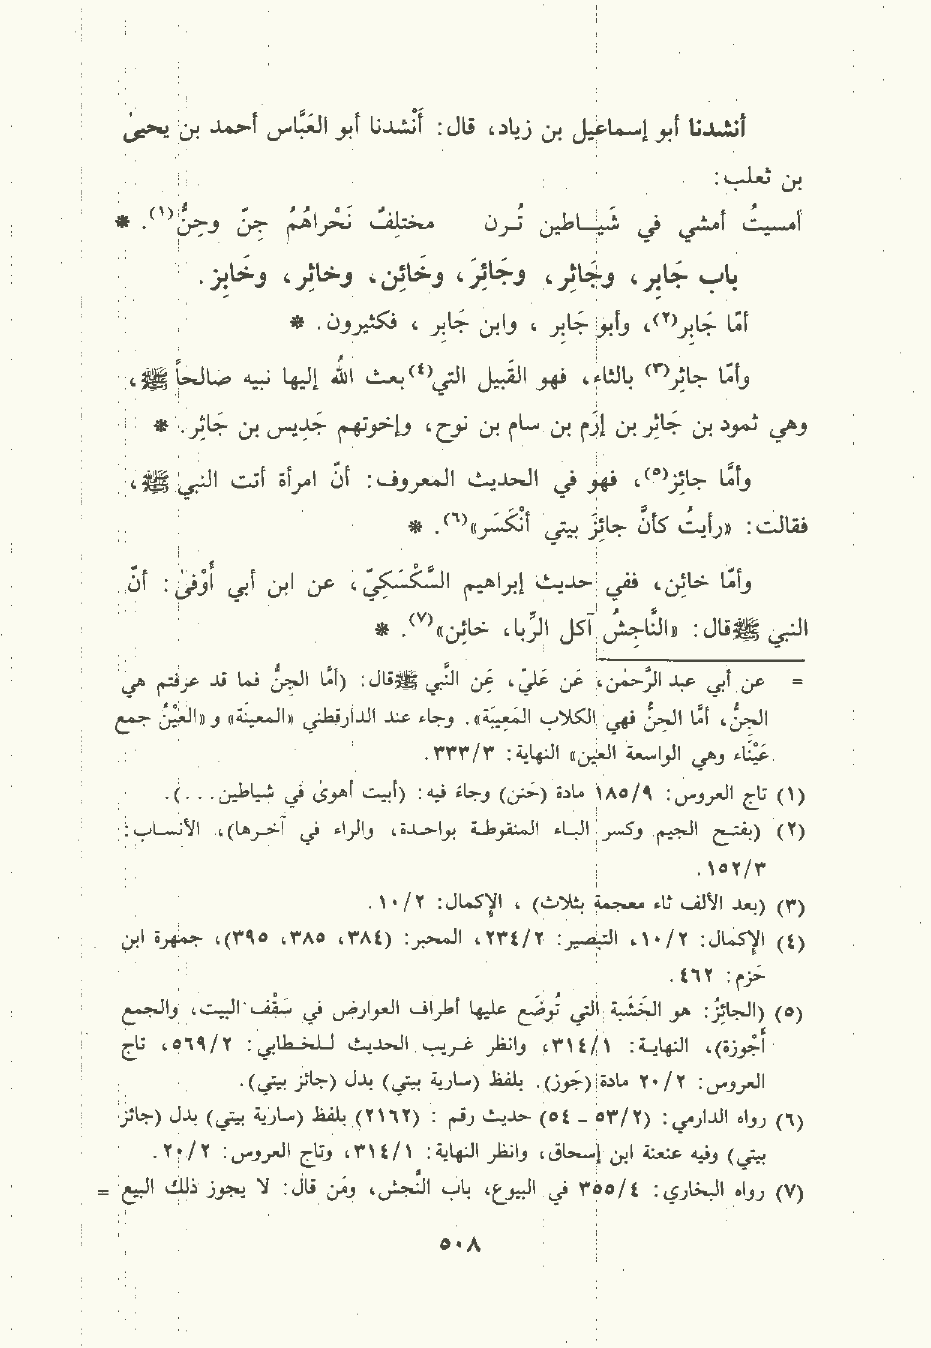 أنشدنا أبو إسماعيل بن زياد، قال: أَنْشدنا أبو العَبَّاس أحمد بن يحيىٰ
بن ثعلب:
أمسيتُ أمشي في شَيـاطين تُـرن مختلِفٌ نَحْراهُمُ جِنّ وحِنُّ(١). *
باب جَابِر، وجَاثِر، وجَائِزَ، وخَائِن، وخاثِر، وخَابِز.
أمّا جَابِر(٢)، وأبو جَابِر، وابن جَابِر، فكثيرون. *
وأمّا جاثِر(٣) بالثاء، فهو القَبيل التي(٤) بعث اللّٰهُ إليها نبيه صالحاً ﷺ،
وهي ثمود بن جَاثِر بن إرَم بن سام بن نوح، وإخوتهم جَدِيس بن جَاثِر. *
وأمَّا جائِز(٥)، فهو في الحديث المعروف: أنّ امرأة أتت النبي ﷺ،
فقالت: «رأيتُ كأنَّ جائِزَ بيتي أنْكَسَر»(٦). *
وأمّا خائِن، ففي حديث إبراهيم السَّكْسَكِيّ، عن ابن أبي أَوْفىٰ: أنّ
النبي ﷺ قال: «النَّاجِشُ آكل الرِّبا، خائِن»(٧). *
= عن أبي عبد الرَّحمٰن، عَن عَليّ، عَن النَّبي ﷺ قال: (أمَّا الجِنُّ فما قد عرفتم هي
الجنُّ، أمَّا الحِنُّ فهي الكلاب المَعِيبَة». وجاء عند الدارقطني «المعينَة» و «العيْنُ جمع
عَيْنَاء وهي الواسعة العين» النهاية: ٣٣٣/٣.
(١) تاج العروس: ١٨٥/٩ مادة (حَنن) وجاءَ فيه: (أبيت أهوىٰ في شياطين...).
(٢) (بفتـح الجيم وكسر البـاء المنقوطـة بواحـدة، والراء في آخـرها)، الأنسـاب:
١٥٢/٣.
(٣) (بعد الألف ثاء معجمة بثلاث) ، الإكمال: ١٠/٢.
(٤) الإكمال: ١٠/٢، التبصير: ٢٣٤/٢، المحبر: (٣٨٤، ٣٨٥، ٣٩٥)، جمهرة ابن
حَزم: ٤٦٢.
(٥) (الجائِزُ: هو الخَشَبة التي تُوضَع عليها أطراف العوارض في سَقْف البيت، والجمع
أَجْوزة)، النهايـة: ٣١٤/١، وانظر غـريب الحديث للـخـطابي: ٥٦٩/٢، تاج
العروس: ٢٠/٢ مادة (جَوز). بلفظ (سارية بيتي) بدل (جائز بيتي).
(٦) رواه الدارمي: (٥٣/٢ ـ ٥٤) حديث رقم : (٢١٦٢) بلفظ (سارية بيتي) بدل (جائز
بيتي) وفيه عنعنة ابن إسحاق، وانظر النهاية: ٣١٤/١، وتاج العروس: ٢٠/٢.
(٧) رواه البخاري: ٣٥٥/٤ في البيوع، باب النَّجش، ومَن قال: لا يجوز ذلك البيع =
٥٠٨